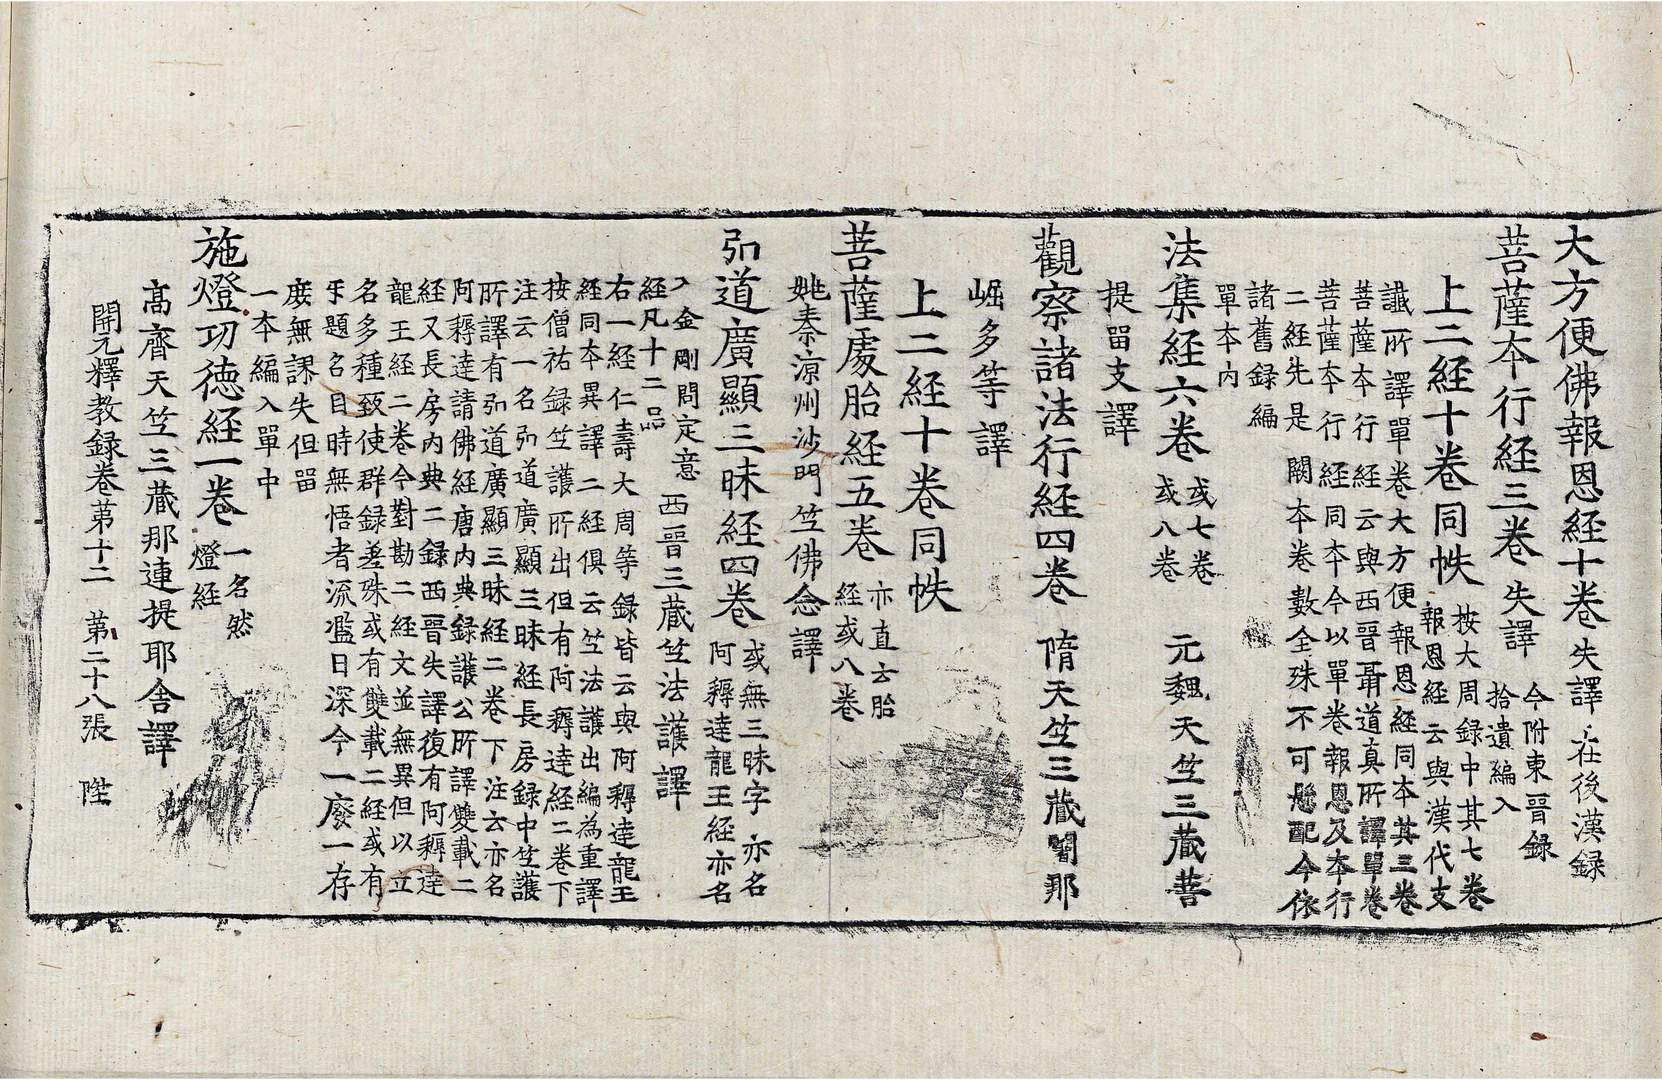 大方便佛報恩経十巻 失譯 在後漢録
菩薩本行経三巻 失譯 今附東晋録
拾遺編入
上二経十巻同帙 按大周録中其七巻
報恩経云與漢代支
讖所譯單巻大方便報恩経同本其三巻
菩薩本行経云與西晋聶道真所譯單巻
菩薩本行経同本今以單巻報恩及本行
二経先是闕本巻數全殊不可懸配今依
諸舊録編
單本内
法集経六巻 或七巻
或八巻 元魏天竺三蔵菩
提留支譯
觀察諸法行経四巻 隋天竺三蔵闍那
崛多等譯
上二経十巻同帙
菩薩處胎経五巻 亦直云胎
経或八巻
姚秦涼州沙門竺佛念譯
弘道廣顯三昧経四巻 或無三昧字亦名
阿耨達龍王経亦名
入金剛問定意
経凡十二品 西晋三蔵竺法護譯
右一経仁壽大周等録皆云與阿耨達龍王
経同本異譯二経俱云竺法護出編為重譯
按僧祐録竺護所出但有阿耨達経二巻下
注云一名弘道廣顯三昧経長房録中竺護
所譯有弘道廣顯三昧経二巻下注云亦名
阿耨達請佛経唐内典録護公所譯雙載二
経又長房内典二録西晋失譯復有阿耨達
龍王経二巻今對勘二経文並無異但以立
名多種致使群録差殊或有雙載二経或有
乎題名目時無悟者流濫日深今一廢一存
庻無謬失但留
一本編入單中
施燈功徳経一巻 一名然
燈経
髙齊天竺三蔵那連提耶舍譯
開元釋教録巻苐十二 第二十八張 陛